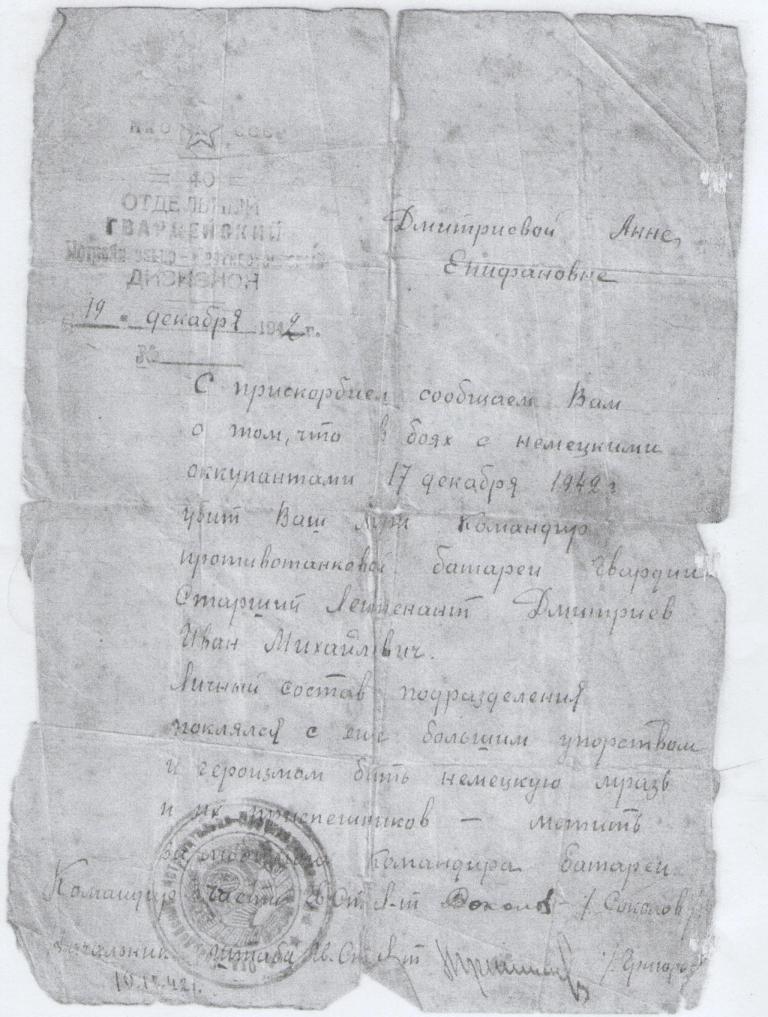 НКО СССР
= 40 =
ОТДЕЛЬНЫЙ
ГВАРДЕЙСКИЙ
ДИВИЗИОН
19 " декабря 1942 г.
№
Дмитриевой Анне
Епифановне
С прискорбием сообщаем Вам
о том, что в боях с немецкими
оккупантами 17 декабря 1942 г
убит Ваш муж Командир
противотанковой батареи гвардии
Старший Лейтенант Дмитриев
Иван Михайлович.
Личный состав подразделения
поклялся с еще большим упорством
и героизмом бить немецкую мразь
и их приспешников — мстить
за командира батареи
Командир части Гв. Ст. Л-т Соколов / Соколов /
Начальник штаба Гв. Ст. Л-т